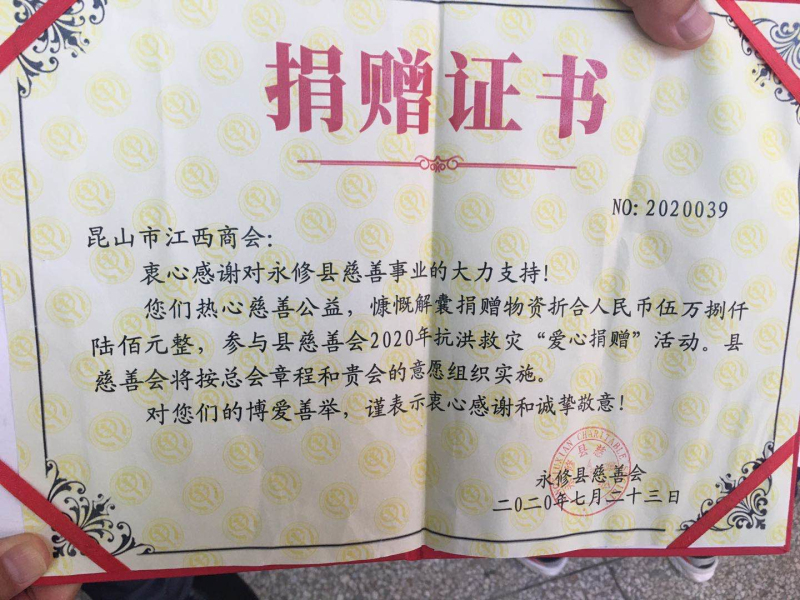 捐赠证书
NO: 2020039
昆山市江西商会:
衷心感谢对永修县慈善事业的大力支持!
您们热心慈善公益，慷慨解囊捐赠物资折合人民币伍万捌仟
陆佰元整，参与县慈善会2020年抗洪救灾“爱心捐赠”活动。县
慈善会将按总会章程和贵会的意愿组织实施。
对您们的博爱善举，谨表示衷心感谢和诚挚敬意!
永修县慈善会
二0二0年七月二十三日